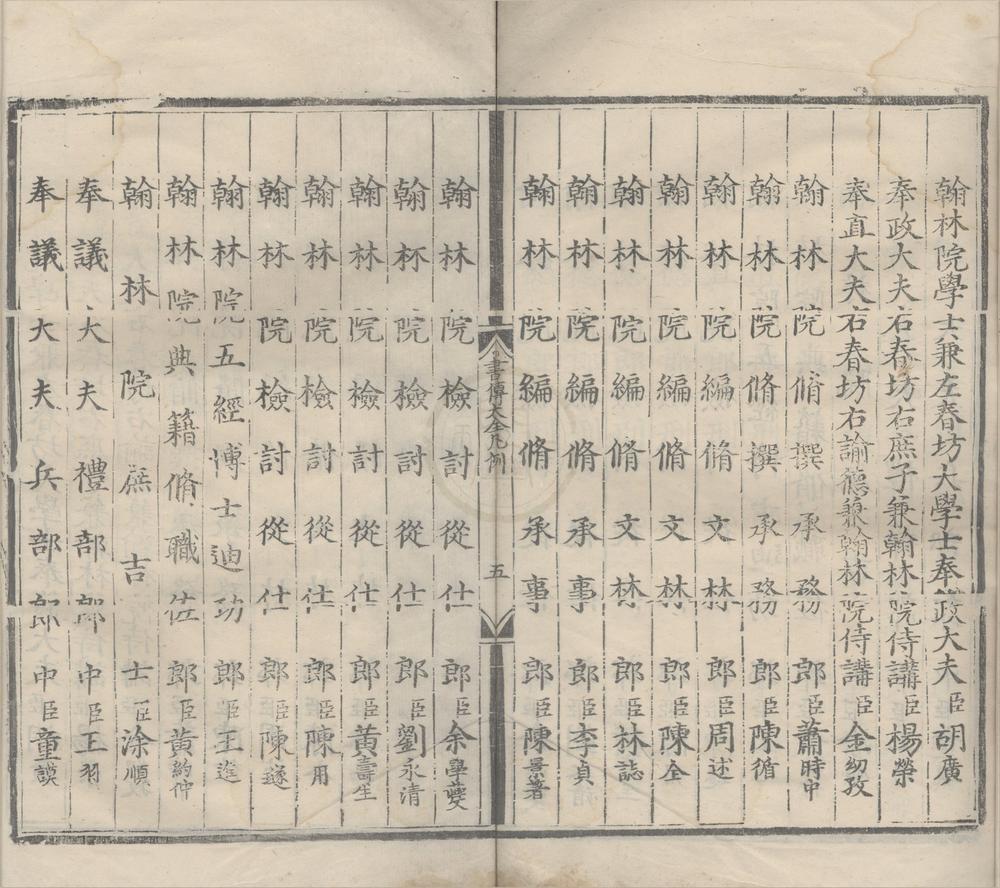 翰林院學士兼左春坊大學士奉政大夫臣胡廣
奉政大夫右春坊右庶子兼翰林院侍講臣楊榮
奉直大夫右春坊右諭德兼翰林院侍講臣金幼孜
翰林院脩撰承務郎臣蕭時中
翰林院脩撰承務郎臣陳循
翰林院編脩文林郎臣周述
翰林院編脩文林郎臣陳全
翰林院編脩文林郎臣林誌
翰林院編脩承事郎臣李貞
翰林院編脩承事郎臣陳景著
書傳大全凡例
五
翰林院檢討從仕郎臣余學夔
翰林院檢討從仕郎臣劉永清
翰林院檢討從仕郎臣黃壽生
翰林院檢討從仕郎臣陳用
翰林院檢討從仕郎臣陳璲
翰林院五經博士迪功郎臣王進
翰林院典籍脩職佐郎臣黃約仲
翰林院庶吉士臣涂順
奉議大夫禮部郎中臣王羽
奉議大夫兵部郎中臣童謨